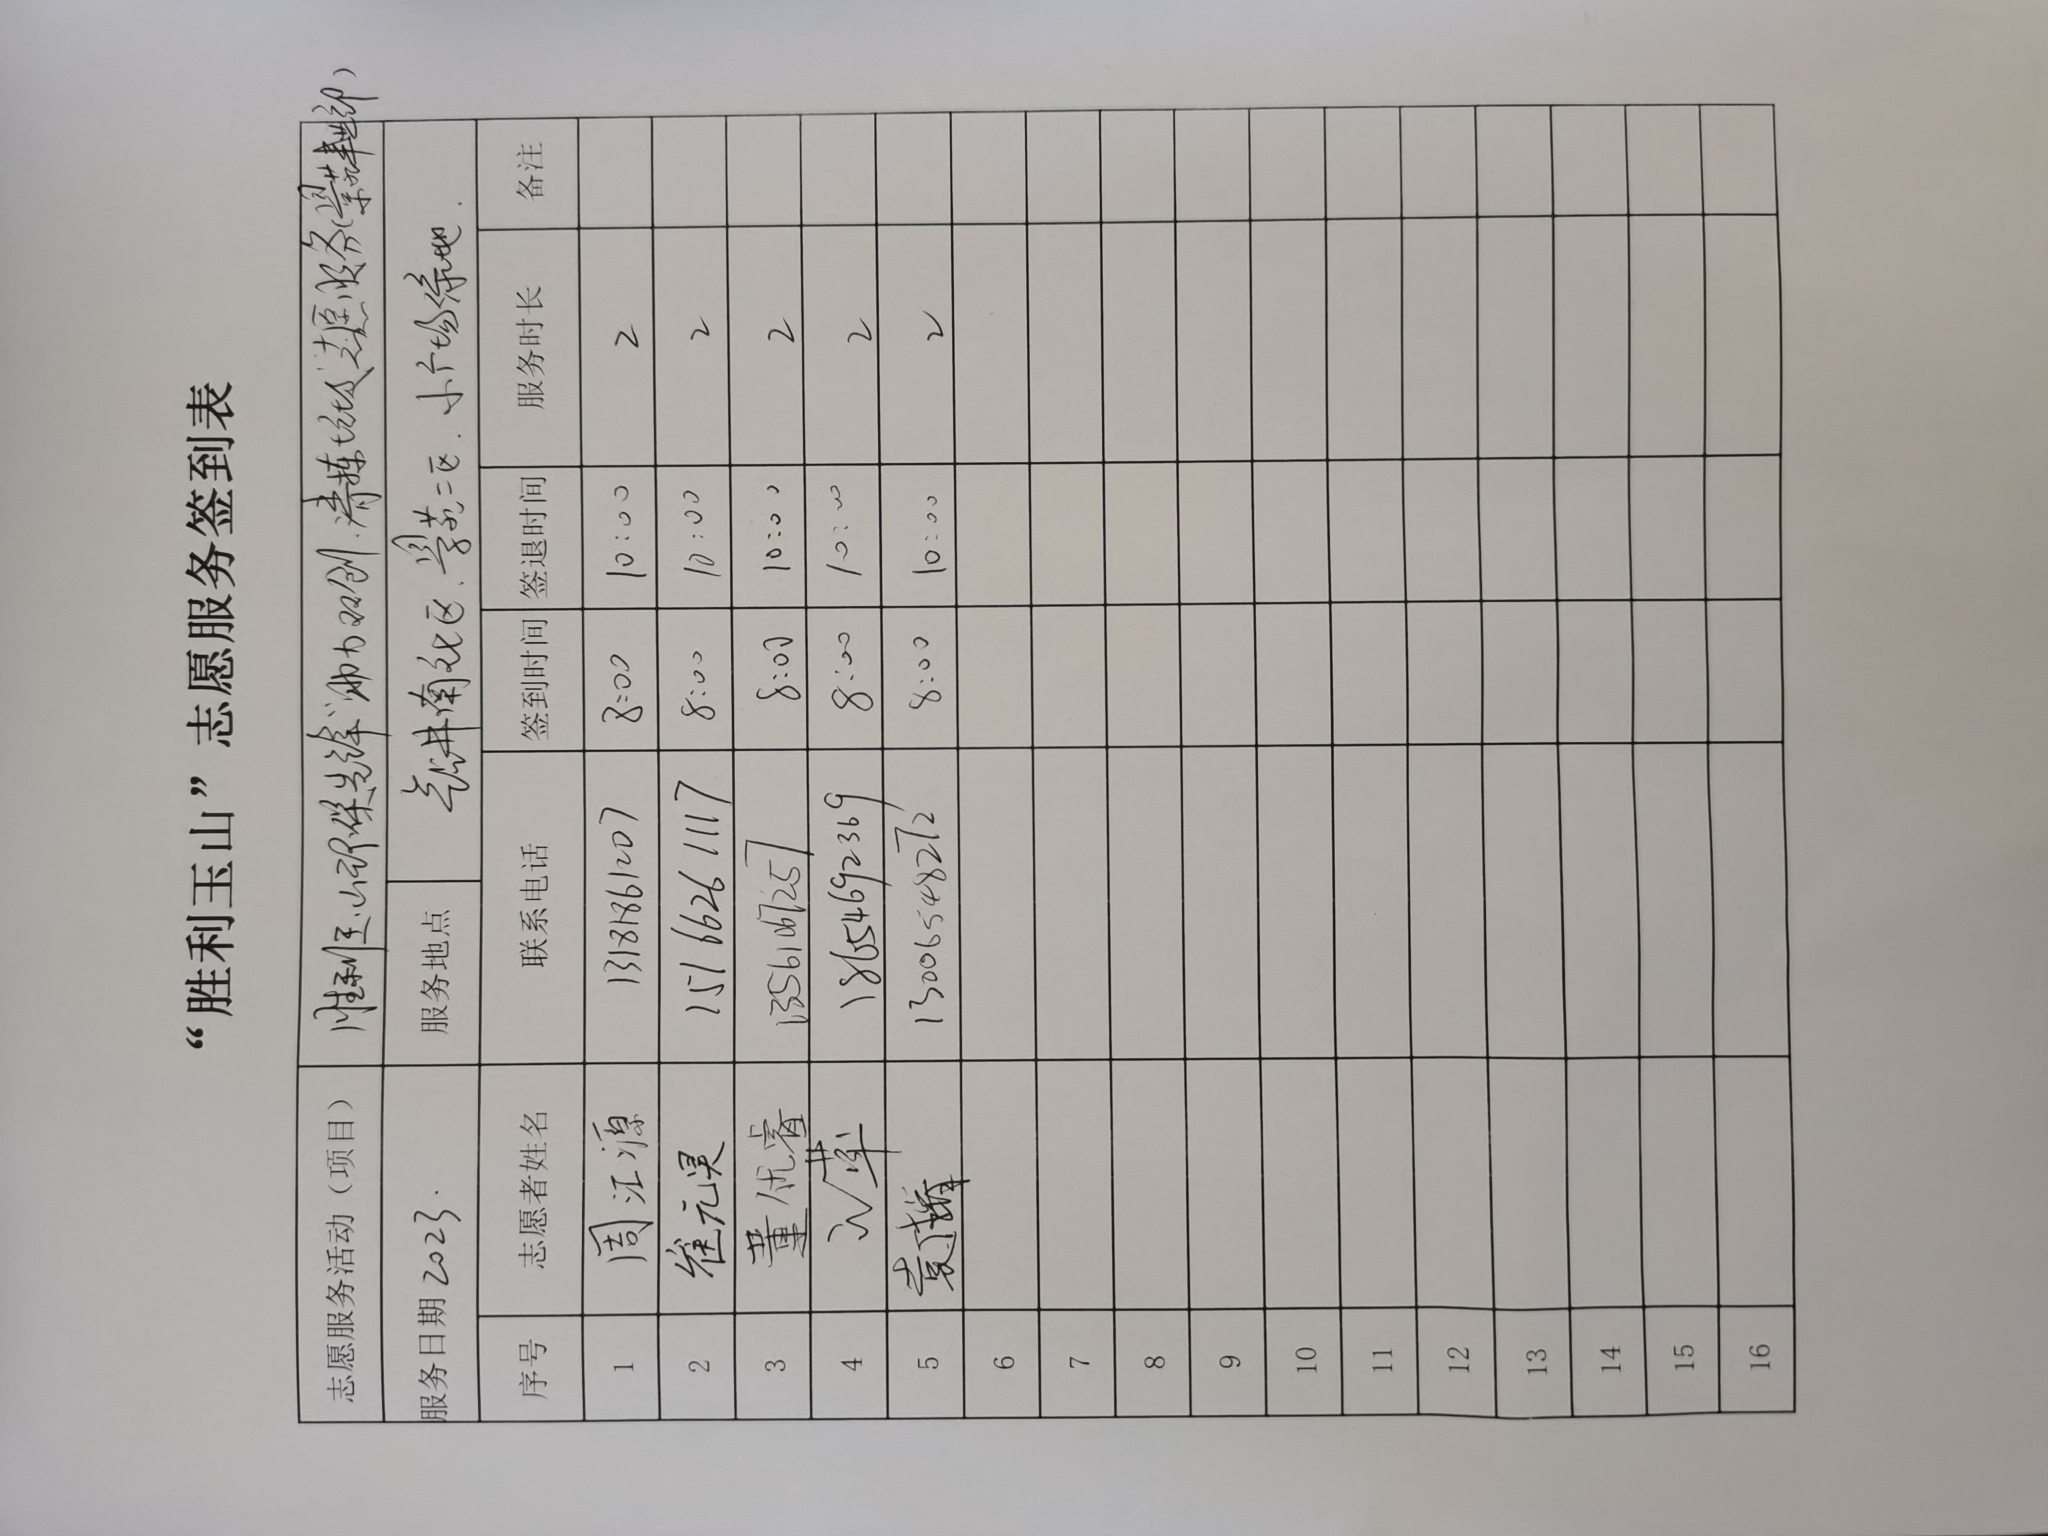 “胜利玉山”志愿服务签到表
志愿服务活动（项目） 胜利玉山 助力双创 清 志愿服务
服务日期 2023. 服务地点 南社区 二区 小广场绿地.
序号 志愿者姓名 联系电话 签到时间 签退时间 服务时长 备注
1 周汇源 13181861207 8:00 10:00 2
2 崔元昊 15166261117 8:00 10:00 2
3 董优睿 8:00 10:00 2
4 18654692369 8:00 10:00 2
5 袁 13006548272 8:00 10:00 2
6
7
8
9
10
11
12
13
14
15
16